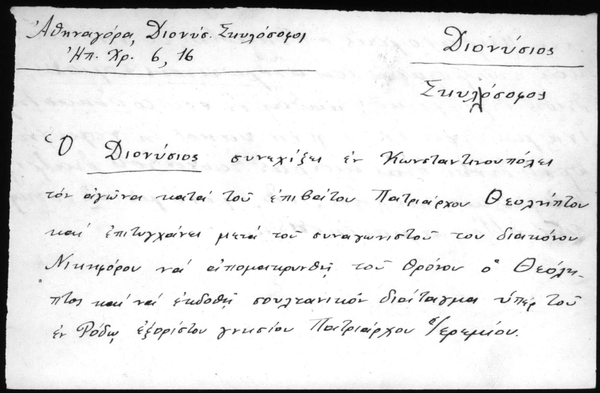 Ἀθηναγόρα, Διονύσ. Σκυλόσοφοι
Ἠπ. Χρ. 6, 16
Διονύσιος
Σκυλόσοφος
Ὁ Διονύσιος συνεχίζει ἐν Κωνσταντινουπόλει
τόν ἀγῶνα κατά τοῦ ἐπιβάτου Πατριάρχου Θεολήπτου
καί ἐπιτυγχάνει μετά τοῦ συναγωνιστοῦ του διακόνου
Νικηφόρου νά ἀπομακρυνθῇ τοῦ θρόνου ὁ Θεόλη-
πτος καί νά ἐκδοθῇ σουλτανικόν διάταγμα ὑπέρ τοῦ
ἐν Ρόδῳ ἐξορίστου γνησίου Πατριάρχου Ἱερεμίου.